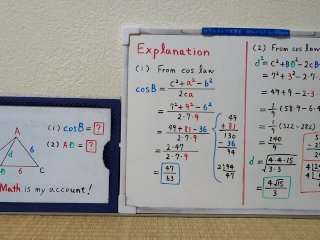 (1) cosB = ?
(2) AD = ?
A
6
D
6
C
Math is my account!
Explanation
(1) From cos law
cosB = c² + a² - b² / 2ca
= 7² + 9² - 6² / 2·7·9
= 49 + 81 - 36 / 2·7·9
= 2·47 / 2·7·9
= 47 / 63
49
+ 81
130
- 36
94
2)94
47
(2) From cos law
d² = c² + BD² - 2cB
= 7² + 3² - 2·7·
= 49 + 9 - 2·3·
= 1/9 (58·9 - 6·4
= 1/9 (522 - 282)
d = √4·4·15 / √3·3
= 4√15 / 3